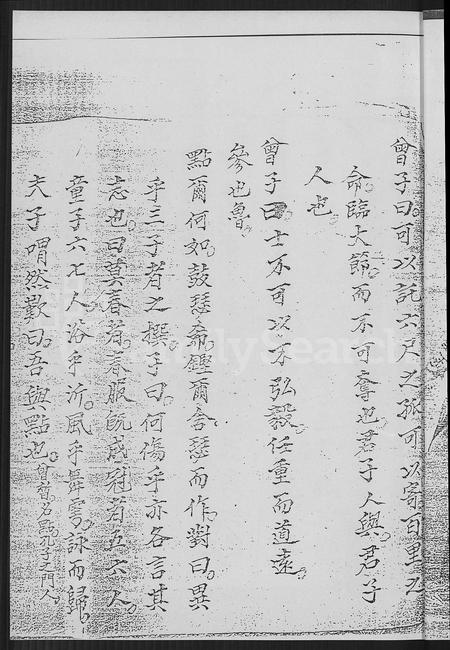 曾子曰可以託六尺之孤可以寄百里之
命臨大節而不可奪也君子人與君子
人也
曾子曰士不可以不弘毅任重而道遠
參也魯
點爾何如鼓瑟希鏗爾舍瑟而作對曰異
乎三子者之撰子曰何傷乎亦各言其
志也曰莫春者春服既成冠者五六人
童子六七人浴乎沂風乎舞雩詠而歸
夫子喟然歎曰吾與點也曾晳名點孔子之門人
FamilySearch